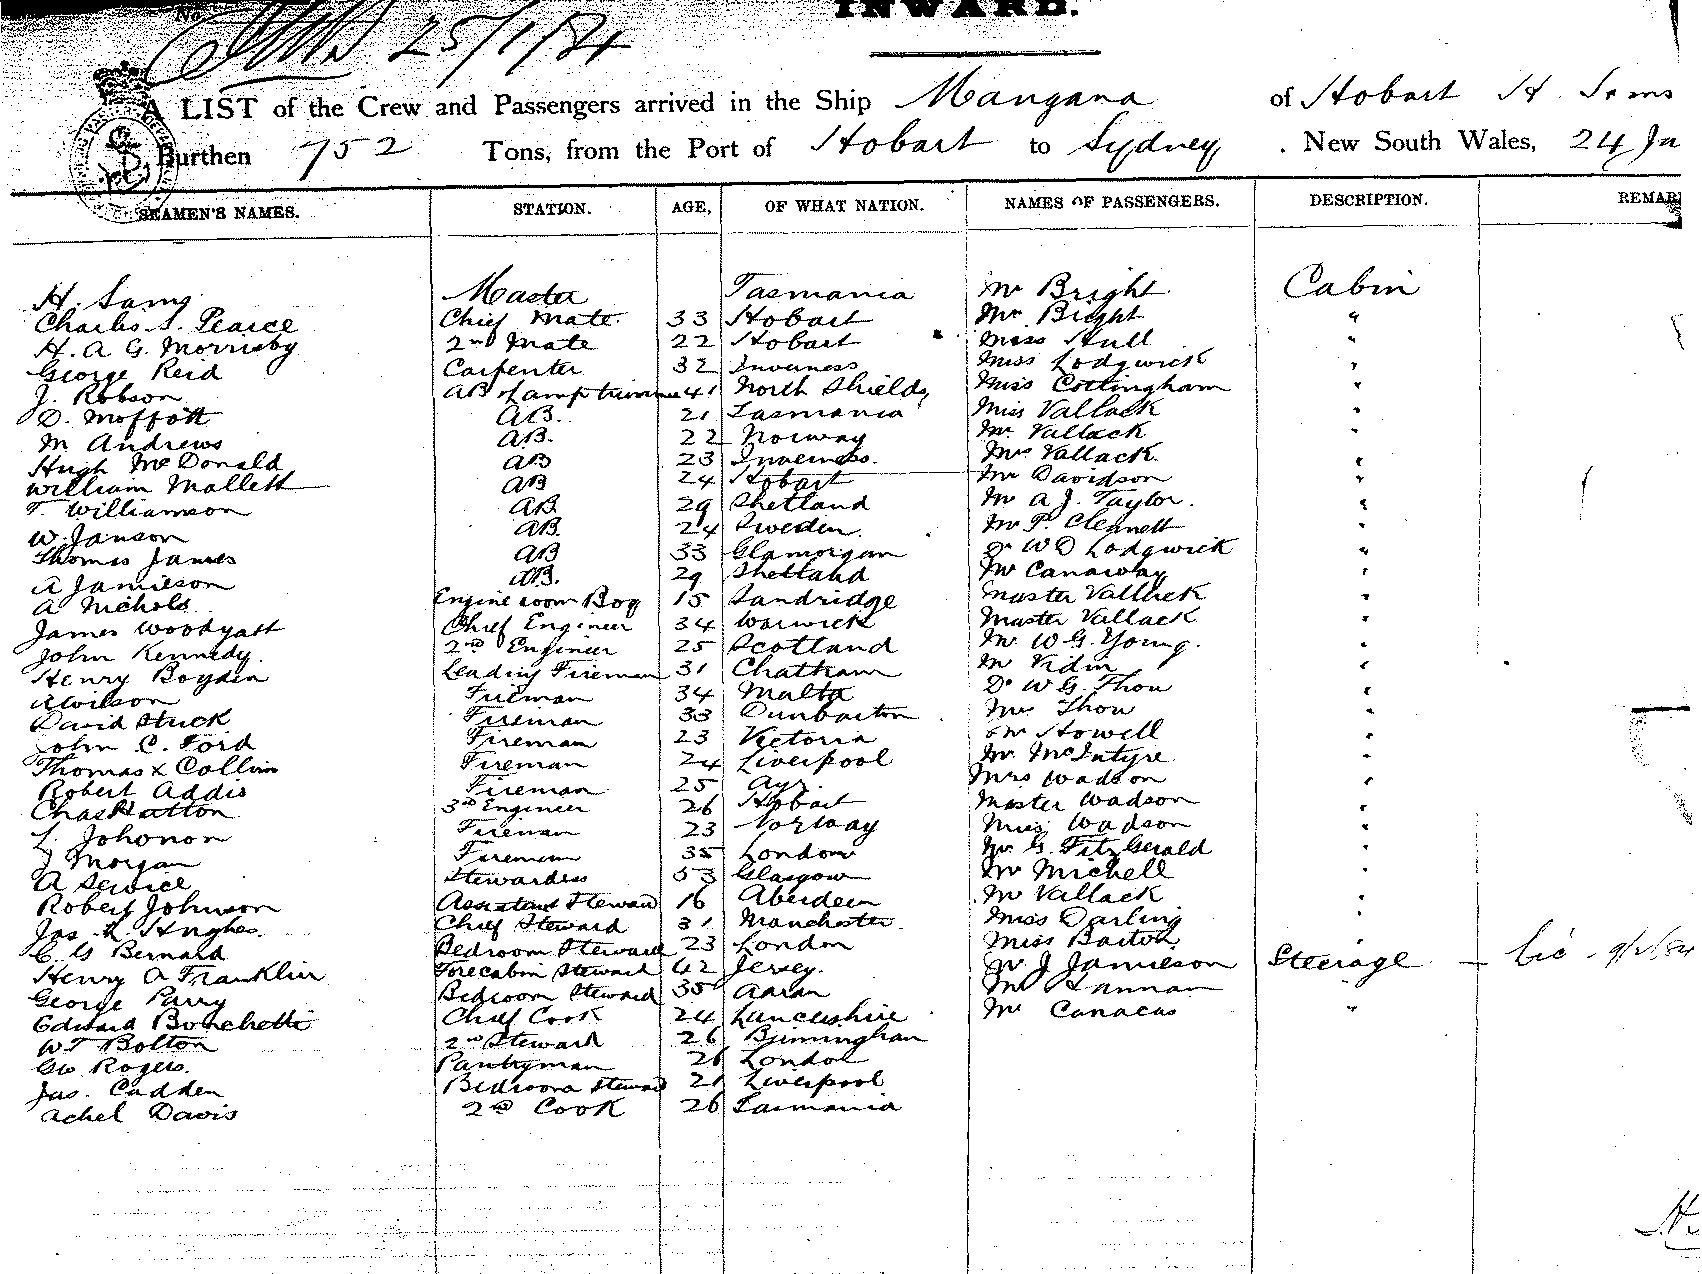 INWARD.
25/1/84
A LIST of the Crew and Passengers arrived in the Ship Mangana of Hobart H. Sams
Burthen 752 Tons, from the Port of Hobart to Sydney. New South Wales, 24 Ja
SEAMEN'S NAMES. STATION. AGE, OF WHAT NATION. NAMES OF PASSENGERS. DESCRIPTION. REMAR
H. Sams Master Tasmania Mr Bright Cabin
Charles S. Pearce Chief Mate. 33 Hobart Mrs Bright "
H. A G. Morrisby 2nd Mate 22 Hobart Miss Hull "
George Reid Carpenter 32 Inverness Miss Lodgwick "
J. Robson AB & Lamptrimmer 41 North Shields Miss Cottingham "
D. Moffatt AB. 21 Tasmania Miss Vallack "
M Andrews AB. 22 Norway Mr. Vallack "
Hugh McDonald AB 23 Inverness. Mrs Vallack. "
William Mallett AB 24 Hobart Mr Davidson "
T. Williamson AB. 29 Shetland Mr A J. Taylor. "
W. Janson AB. 24 Sweden. Mr P. Clennett "
Thomas James AB 33 Glamorgan Dr W D Lodgwick "
A Jamieson AB. 29 Shetland Mr Canaway "
A Nichols Engine room Boy 15 Sandridge Master Vallack "
James Woodyatt Chief Engineer 34 Warwick Master Vallack "
John Kennedy. 2nd Engineer 25 Scotland Mr. W G. Young. "
Henry Boyden Leading Fireman 31 Chatham Mr "
A Wilson Fireman 34 Malta Dr W G. Thou "
David Stuck Fireman 33 Dunbarton Mrs Thou "
John C. Ford Fireman 23 Victoria Mr Stowell "
Thomas x Collins Fireman 24 Liverpool Mr McIntyre "
Robert Addis Fireman 25 Ayr. Mrs Wadson "
Chas Hatton 3rd Engineer 26 Hobart Master Wadson "
L. Johonon Fireman 23 Norway Miss Wadson "
J Morgan Fireman 35 London Mr G. FitzGerald "
A Service Stewardess 53 Glasgow Mr Michell "
Robert Johnson Assistant Steward 16 Aberdeen Mr Vallack "
Jas. L. Hughes. Chief Steward 31 Manchester Miss Darling "
C. G Bernard Bedroom Steward 23 London Miss Barton "
Henry A Franklin Forecabin Steward 42 Jersey. Mr J Jamieson Steerage
George Parry Bedroom Steward 35 Aaran Mr Hannan "
Edward Bonchetti Chief Cook 24 Lancashire Mr Canacas "
W T Bolton 2nd Steward 26 Birmingham
Geo Rogers. Pantryman 26 London
Jas. Cadden Bedroom Steward 21 Liverpool
Achel Davis 2nd Cook 26 Tasmania